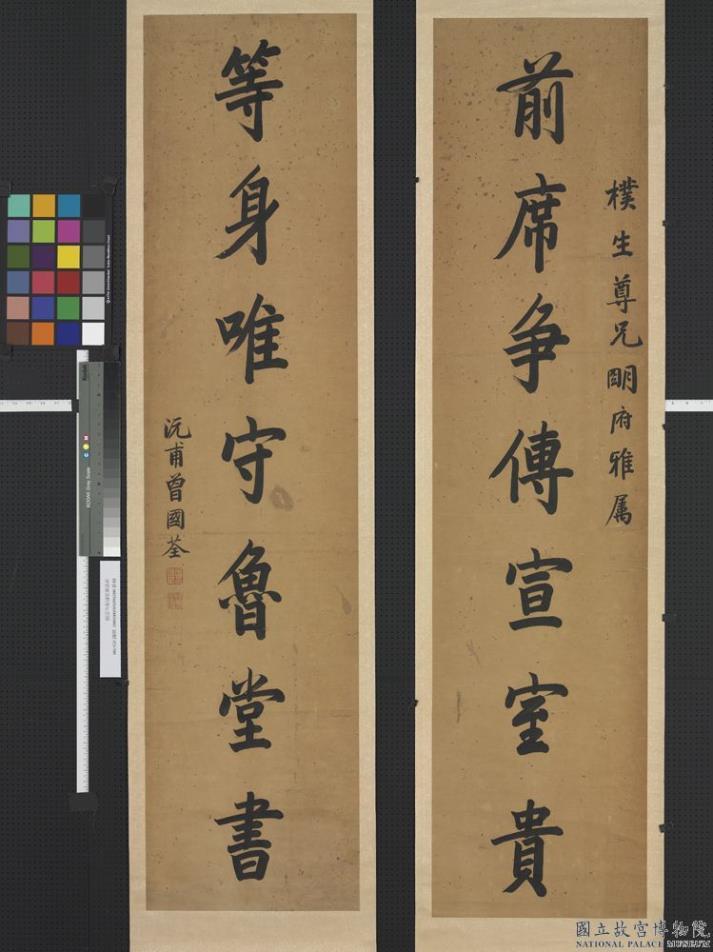 樸生尊兄明府雅属
前席争傳宣室貴
等身唯守魯堂書
沅甫曾國荃
國立故宮博物院
NATIONAL PALACE MUSEUM